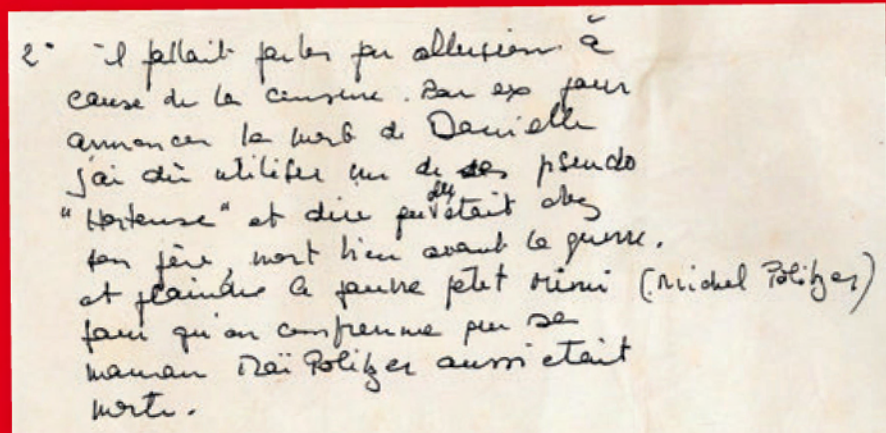 2° il fallait parler par allusion à
cause de la censure. Par ex pour
annoncer la mort de Danielle
j'ai dû utiliser un de ses pseudo
"Hortense" et dire qu'elle était chez
son père, mort bien avant la guerre.
et plaindre le pauvre petit Mimi (Michel Politzer)
pour qu'on comprenne que sa
maman Maï Politzer aussi était
morte.